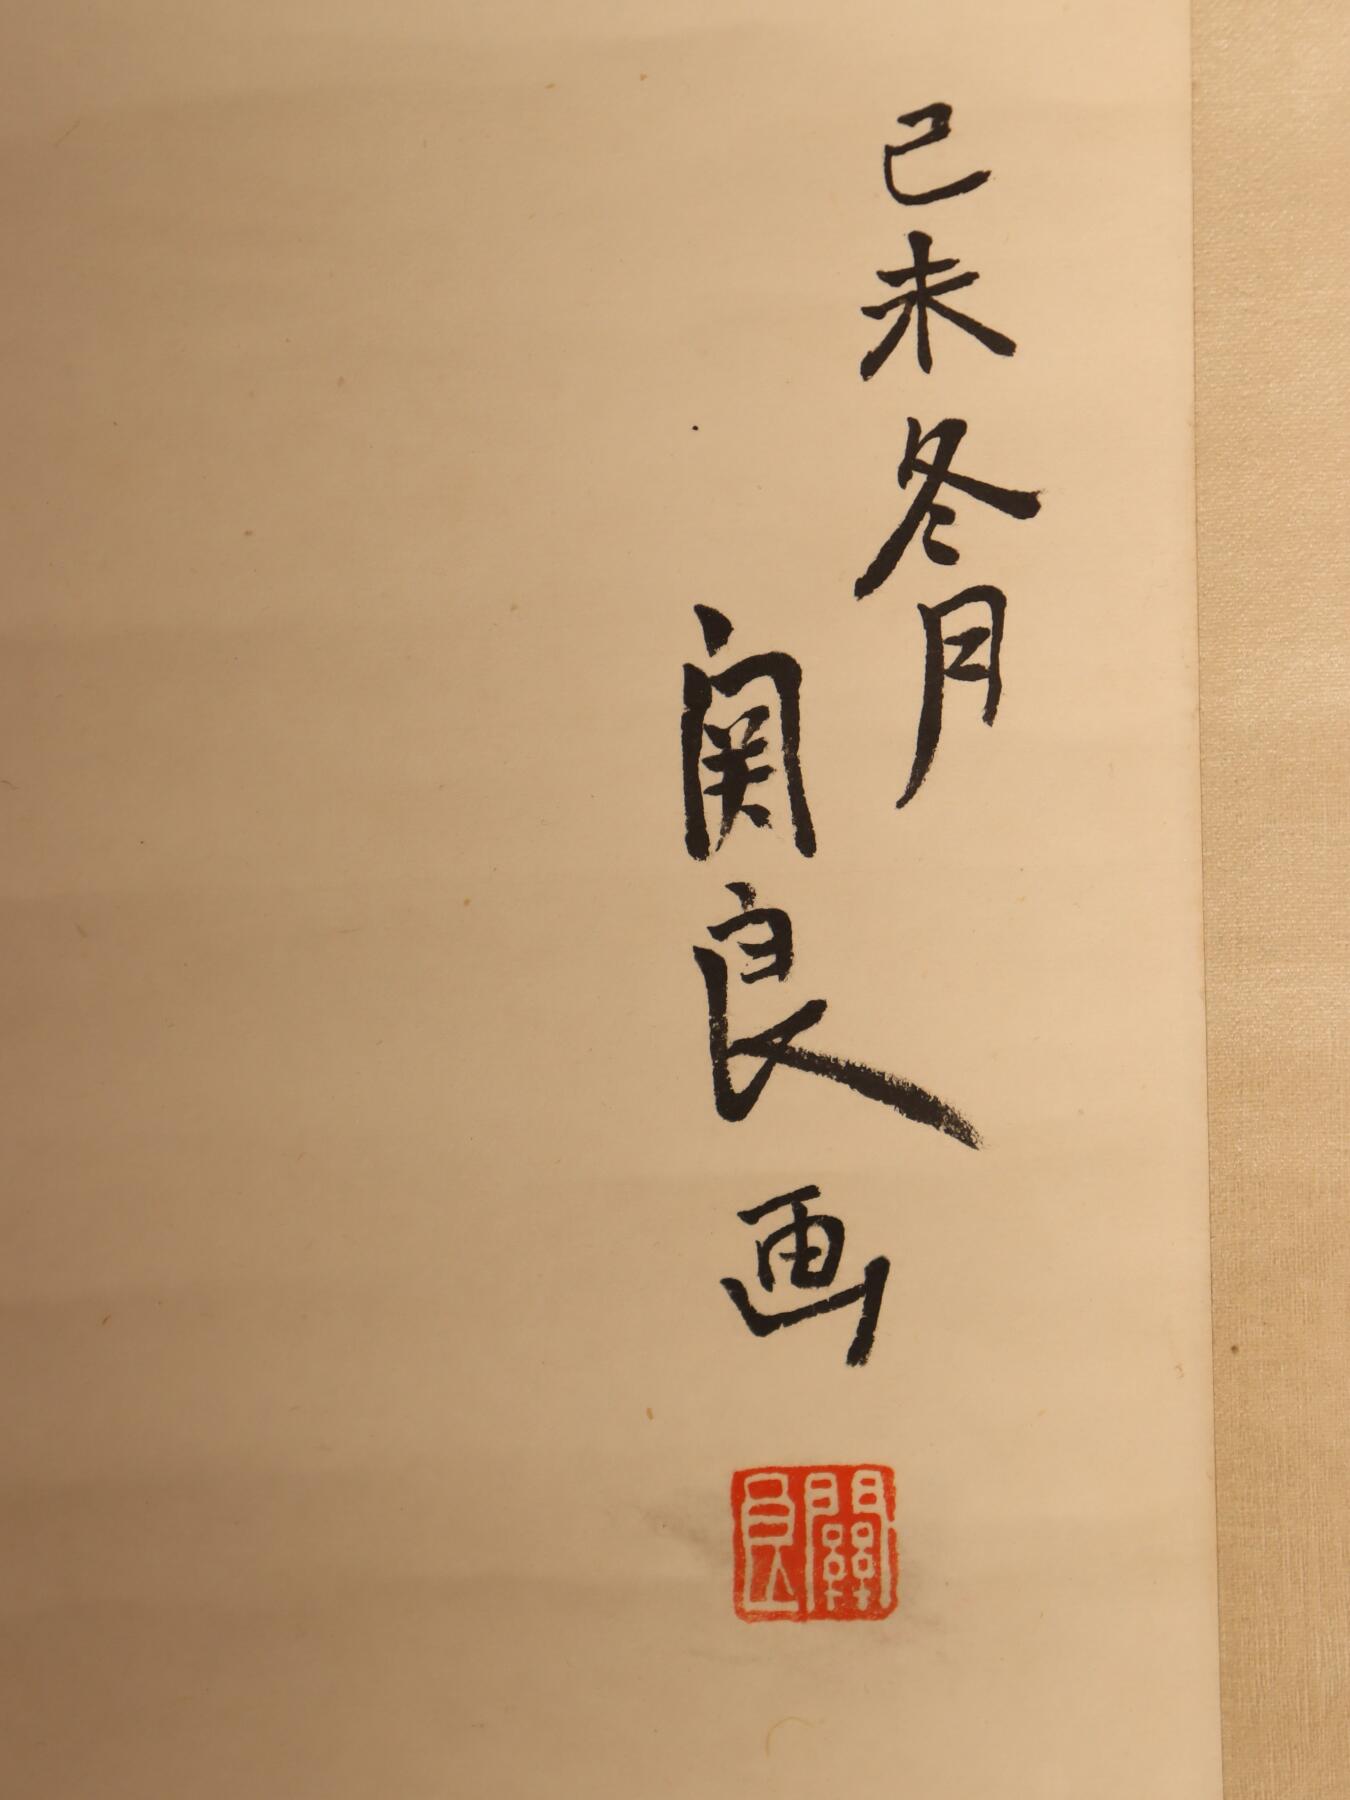 己未冬月
関良画
關良